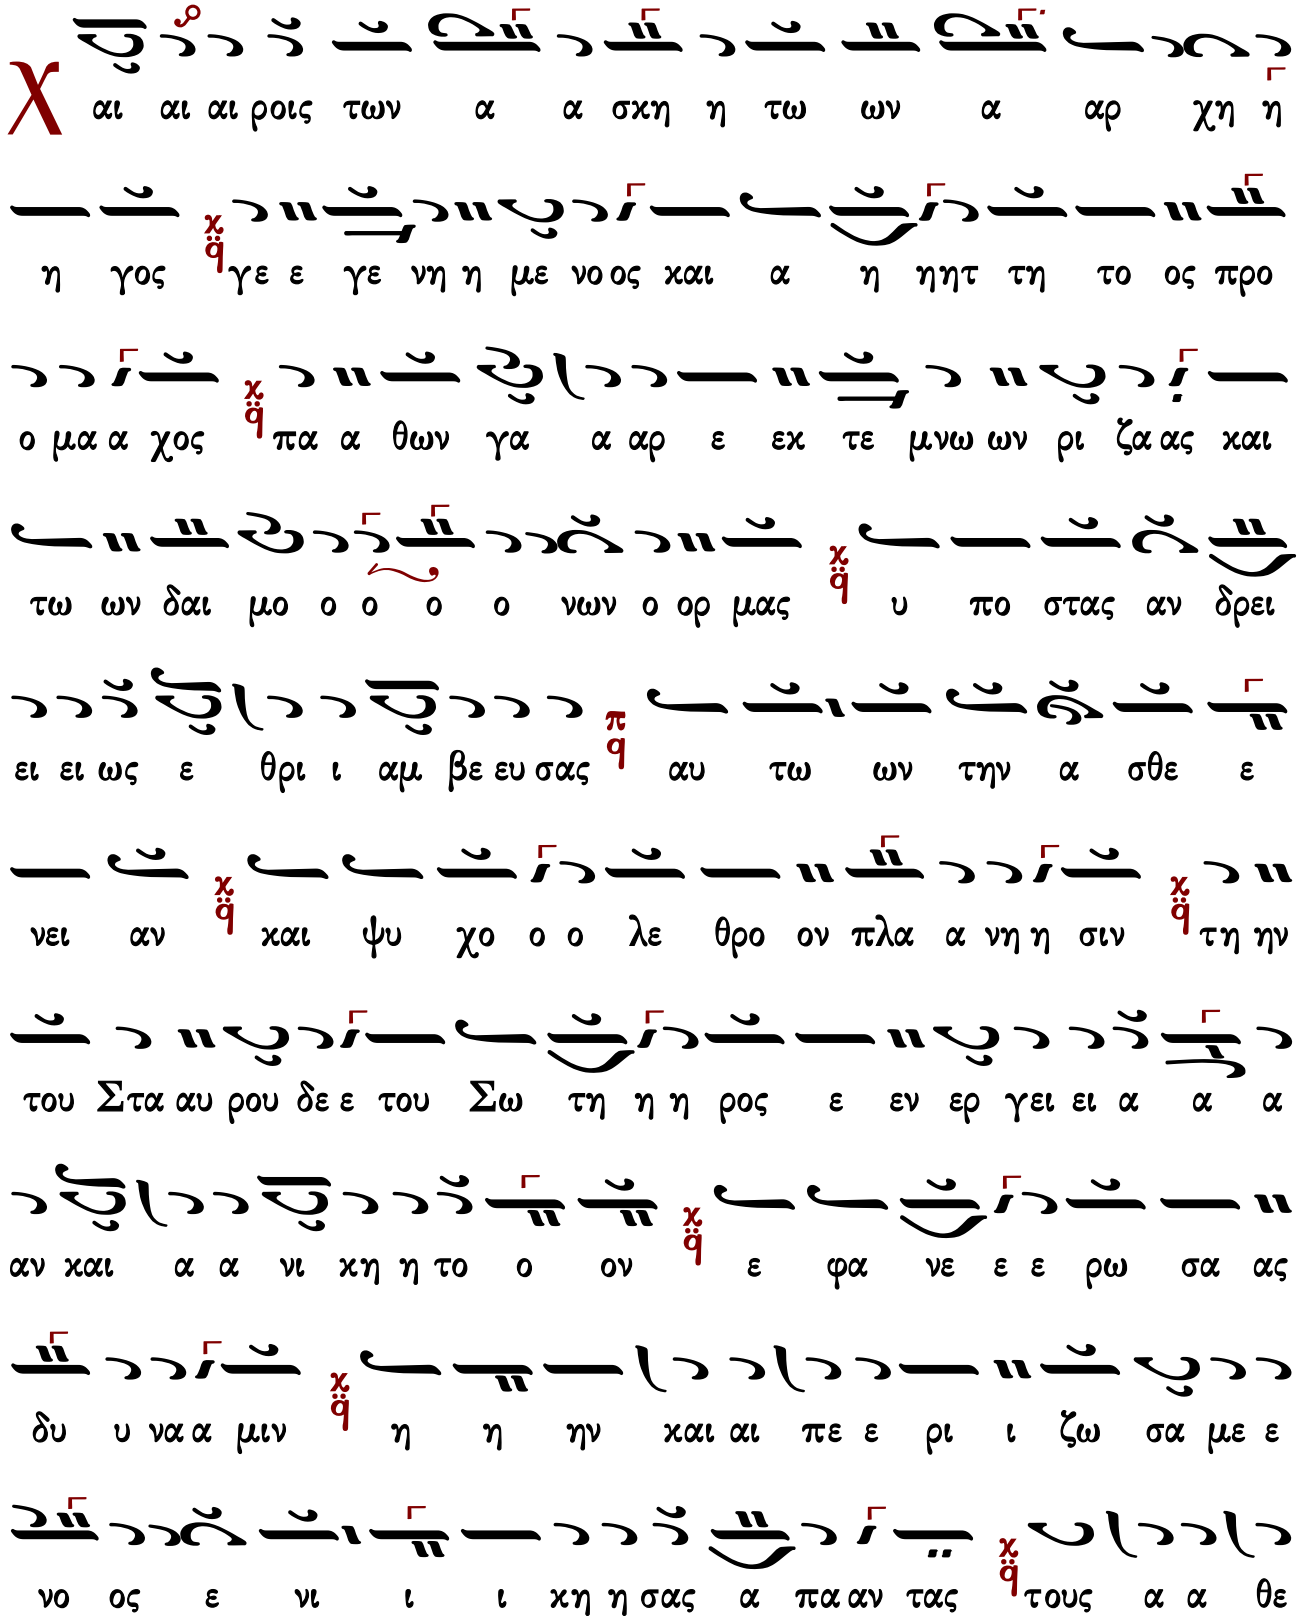 Χ αι αι αι ροις των α α σκη η τω ων α αρ χη η
η γος γε ε γε νη η με νο ος και α η ηητ τη το ος προ
ο μα α χος πα α θων γα α αρ ε εκ τε μνω ων ρι ζα ας και
τω ων δαι μο ο ο ο ο νων ο ορ μας υ πο στας αν δρει
ει ει ως ε θρι ι αμ βε ευ σας αυ τω ων την α σθε ε
νει αν και ψυ χο ο ο λε θρο ον πλα α νη η σιν τη ην
του Στα αυ ρου δε ε του Σω τη η η ρος ε εν ερ γει ει α α α
αν και α α νι κη η το ο ον ε φα νε ε ε ρω σα ας
δυ υ να α μιν η η ην και αι πε ε ρι ι ζω σα με ε
νο ος ε νι ι ι κη η σας α πα αν τας τους α α θε